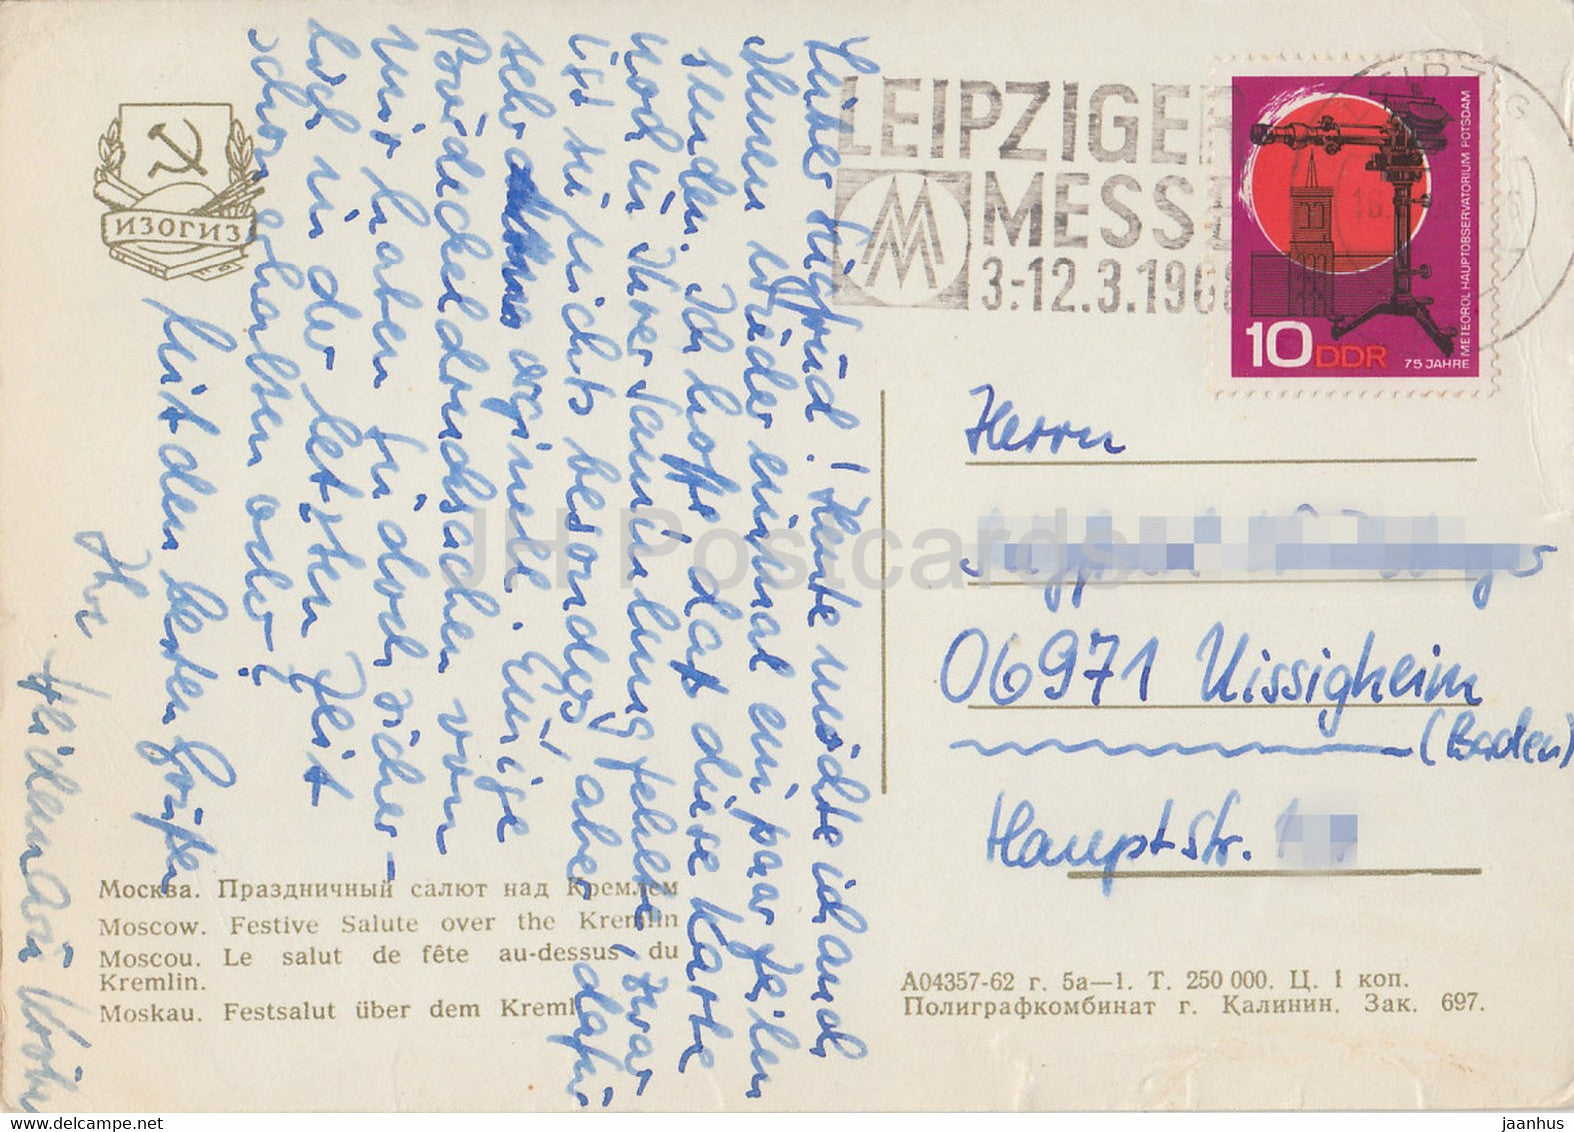 Lieber Siegfried! Heute möchte ich auch
Ihnen wieder einmal ein paar Zeilen
senden. Ich hoffe daß diese Karte
noch in Ihrer Sammlung fehlte, zwar
ist sie nichts besonders, aber dafür
sehr orginell. Einige
Drucksachen von
mir haben Sie doch sicher-
lich in der letzten Zeit
schon erhalten oder?
Mit den besten Grüßen
Ihr
ИЗОГИЗ
LEIPZIGER
MESSE
MM
3.-12.3.1968
10 DDR
75 JAHRE
METEOROL. HAUPTOBSERVATORIUM POTSDAM
Herrn
06971 Uissigheim
(Baden)
Hauptstr.
Москва. Праздничный салют над Кремлем
Moscow. Festive Salute over the Kremlin
Moscou. Le salut de fête au-dessus du
Kremlin.
Moskau. Festsalut über dem Kreml
А04357-62 г. 5а—1. Т. 250 000. Ц. 1 коп.
Полиграфкомбинат г. Калинин. Зак. 697.
JH Postcards
www.delcampe.net
jaanhus